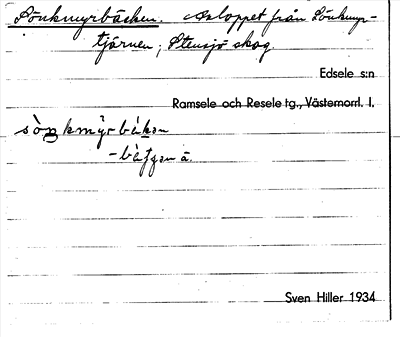 Sönkmyrbäcken. Avloppet från Sönkmyr-
tjärnen; Stensjö skog
Edsele s:n
Ramsele och Resele tg., Västernorrl. l.
sòŋkmỳrbɛ́kən
Sven Hiller 1934